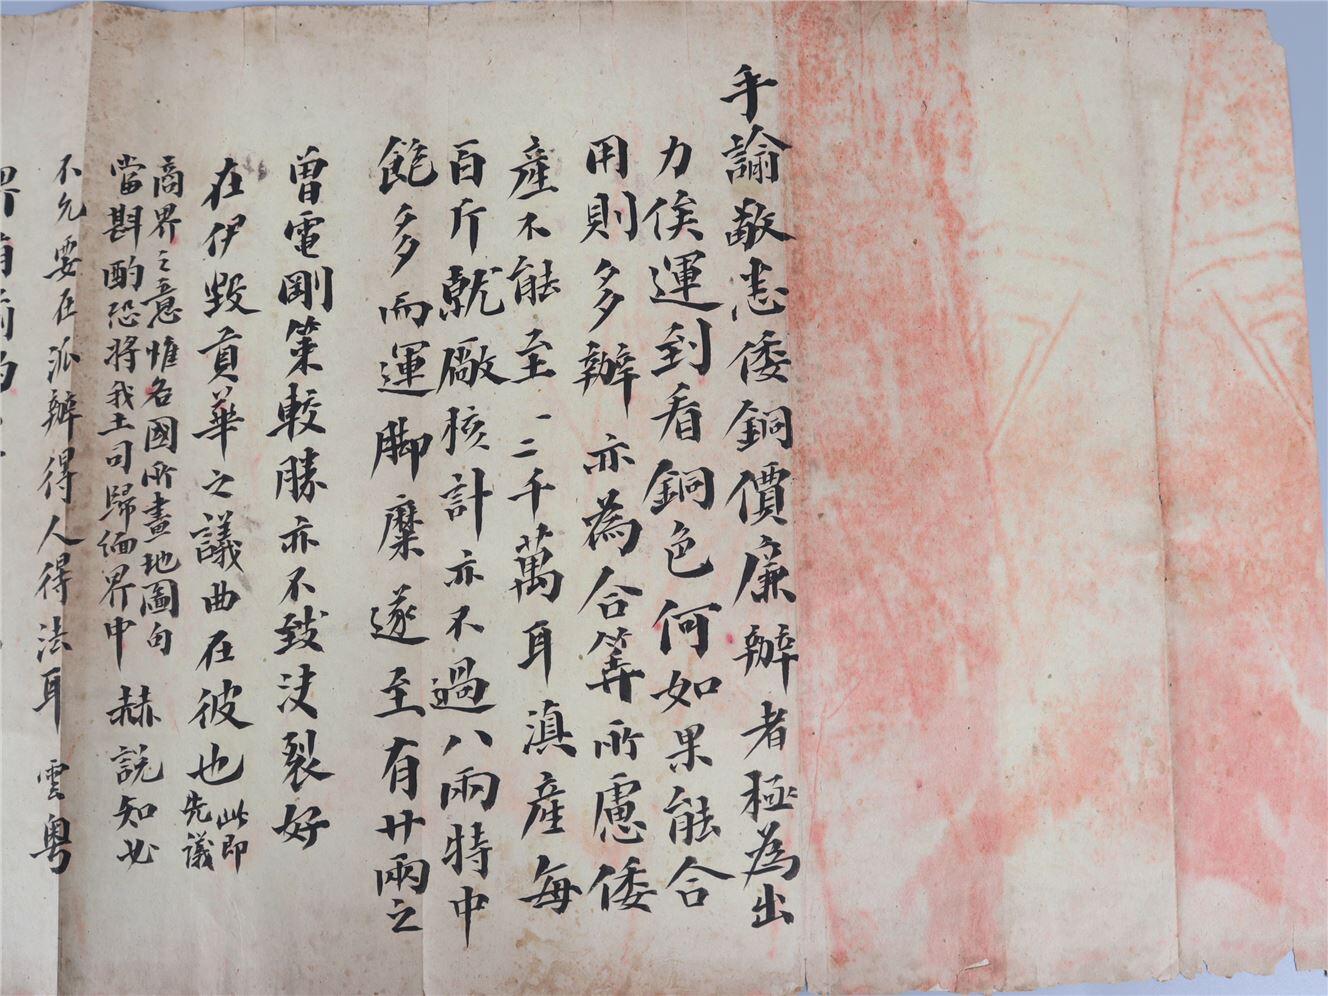 手諭敬悉倭銅價廉辦者極為出
力俟運到看銅色何如果能合
用則多辦亦為合算所慮倭
產不能至一二千萬耳滇產每
百斤就廠核計亦不過八兩特中
飽多而運脚糜遂至有廿兩之
曾電剛策較勝亦不致決裂好
在伊毀貢華之議曲在彼也此即
先議
商界之意惟各國所畫地圖向
當斟酌恐將我土司歸緬界中赫說知此
不允要在派辦得人得法耳雲粤